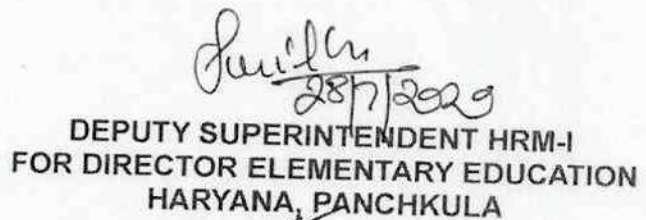 28/7/2020
DEPUTY SUPERINTENDENT HRM-I
FOR DIRECTOR ELEMENTARY EDUCATION
HARYANA, PANCHKULA